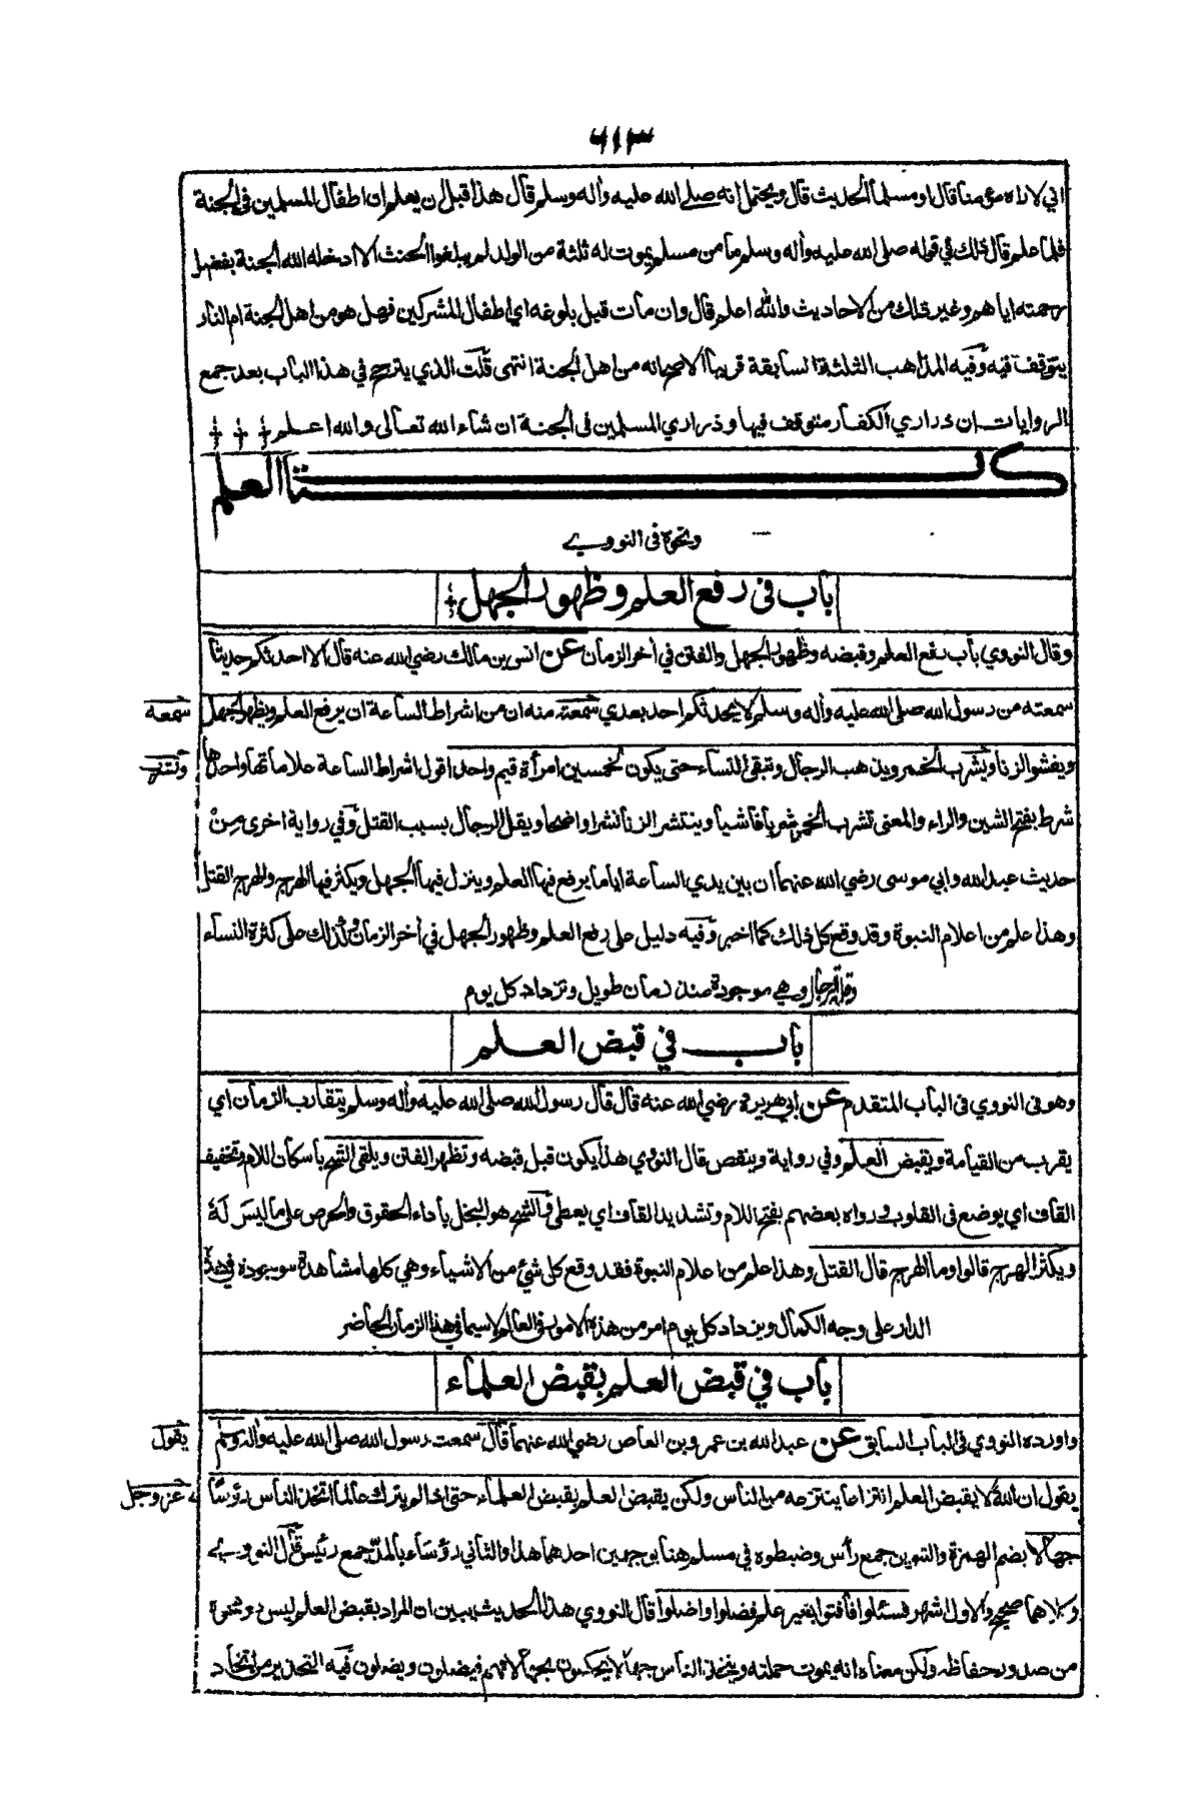 ٦١٣
اني لاراه مؤمنا قال او مسلما الحديث قال ويحتمل انه صلى الله عليه واٰله وسلم قال هذا قبل ان يعلم ان اطفال المسلمين في الجنة
فلما علم قال ذلك في قوله صلى الله عليه واٰله وسلم ما من مسلم يموت له ثلثة من الولد لم يبلغوا الحنث الا ادخله الله الجنة بفضل
رحمته اياهم وغير ذلك من الاحاديث والله اعلم قال وان مات قبل بلوغه اي اطفال المشركين فهل هو من اهل الجنة ام النار
يتوقف فيه وفيه المذاهب الثلثة السابقة قريبا الاصح انه من اهل الجنة انتهى قلت الذي يترجح في هذا الباب بعد جمع
الروايات ان ذراري الكفار متوقف فيها وذراري المسلمين في الجنة ان شاء الله تعالى والله اعلم
كتاب العلم
ونحوه في النووي
باب في رفع العلم وظهور الجهل
وقال النووي باب رفع العلم وقبضه وظهور الجهل والفتن في اٰخر الزمان عن انس بن مالك رضي الله عنه قال الا احدثكم حديثا
سمعته من رسول الله صلى الله عليه واٰله وسلم لا يحدثكم احد بعدي سمعته منه ان من اشراط الساعة ان يرفع العلم ويظهر الجهل
سمعه
ويفشو الزنا ويشرب الخمر ويذهب الرجال وتبقى النساء حتى يكون لخمسين امرأة قيم واحد اقول اشراط الساعة علاماتها واحدها
وتشرب
شرط بفتح الشين والراء والمعنى تشرب الخمر شربا فاشيا وينتشر الزنا نشرا واضحا ويقل الرجال بسبب القتل وفي رواية اخرى من
حديث عبد الله وابي موسى رضي الله عنهما ان بين يدي الساعة اياما يرفع فيها العلم وينزل فيها الجهل ويكثر فيها الهرج والهرج القتل
وهذا علم من اعلام النبوة وقد وقع كل ذلك كما اخبر وفيه دليل على رفع العلم وظهور الجهل في اٰخر الزمان وكذلك على كثرة النساء
وقلة الرجال وهي موجودة منذ زمان طويل وتزداد كل يوم
باب في قبض العلم
وهو في النووي في الباب المتقدم عن ابي هريرة رضي الله عنه قال قال رسول الله صلى الله عليه واٰله وسلم يتقارب الزمان اي
يقرب من القيامة ويقبض العلم وفي رواية وينقص قال النووي هذا يكون قبل قبضه وتظهر الفتن ويلقى الشح باسكان اللام وتخفيف
القاف اي يوضع في القلوب ورواه بعضهم بفتح اللام وتشديد القاف اي يعطى والشح هو البخل باداء الحقوق والحرص على ما ليس له
ويكثر الهرج قالوا وما الهرج قال القتل وهذا علم من اعلام النبوة فقد وقع كل شيء من الاشياء وهي كلها مشاهدة موجودة في هذه
الدار على وجه الكمال ويزداد كل يوم امر من هذه الامور في العالم لا سيما في هذا الزمان الحاضر
باب في قبض العلم بقبض العلماء
واورده النووي في الباب السابق عن عبد الله بن عمرو بن العاص رضي الله عنهما قال سمعت رسول الله صلى الله عليه واٰله وسلم
يقول
يقول ان الله لا يقبض العلم انتزاعا ينتزعه من الناس ولكن يقبض العلم بقبض العلماء حتى اذا لم يترك عالما اتخذ الناس رؤسا
عز وجل
جهالا بضم الهمزة والتنوين جمع رأس وضبطوه في مسلم هنا بوجهين احدهما هذا والثاني رؤساء بالمد جمع رئيس قال النووي
وكلاهما صحيح والاول اشهر فسئلوا فافتوا بغير علم فضلوا واضلوا قال النووي هذا الحديث يبين ان المراد بقبض العلم ليس هو محوه
من صدور حفاظه ولكن معناه انه يموت حملته ويتخذ الناس جهالا يحكمون بجهالاتهم فيضلون ويضلون وفيه التحذير من اتخاذ